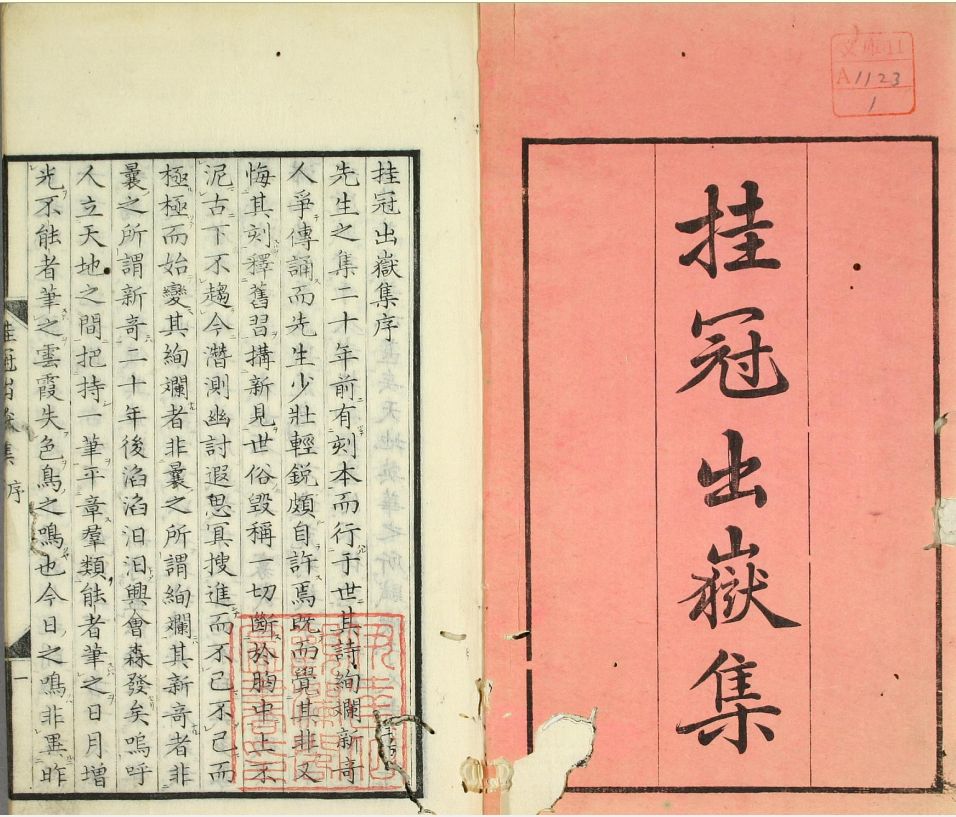 文庫11
A1123
1
挂冠出嶽集
挂冠出嶽集序
先生之集二十年前有刻本而行于世其詩絢斕新奇
人爭傳誦而先生少壯輕銳頗自許焉既而覺其非又
悔其刻釋舊習搆新見世俗毀稱一切斷於胸中上不
泥古下不趨今潛測幽討遐思冥搜進而不已不已而
極極而始變其絢斕者非曩之所謂絢斕其新奇者非
曩之所謂新奇二十年後滔滔汩汩興會森發矣嗚呼
人立天地之間把持一筆平章羣類能者筆之日月增
光不能者筆之雲霞失色鳥之鳴也今日之鳴非異昨
挂冠出嶽集 序 一